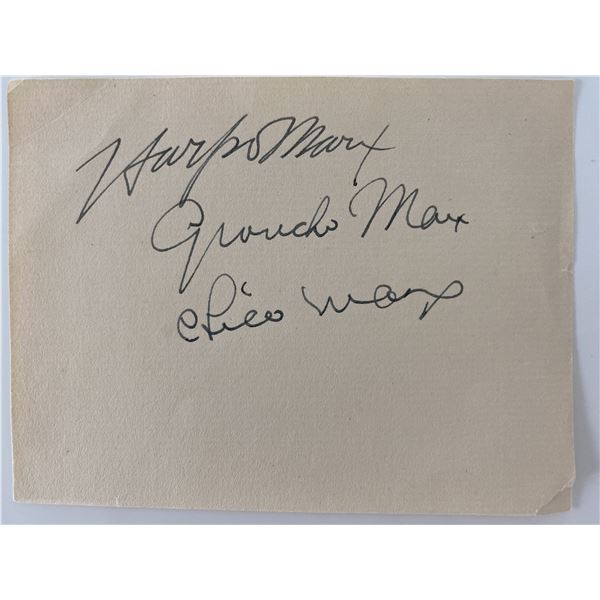 Harpo Marx
Groucho Marx
Chico Marx